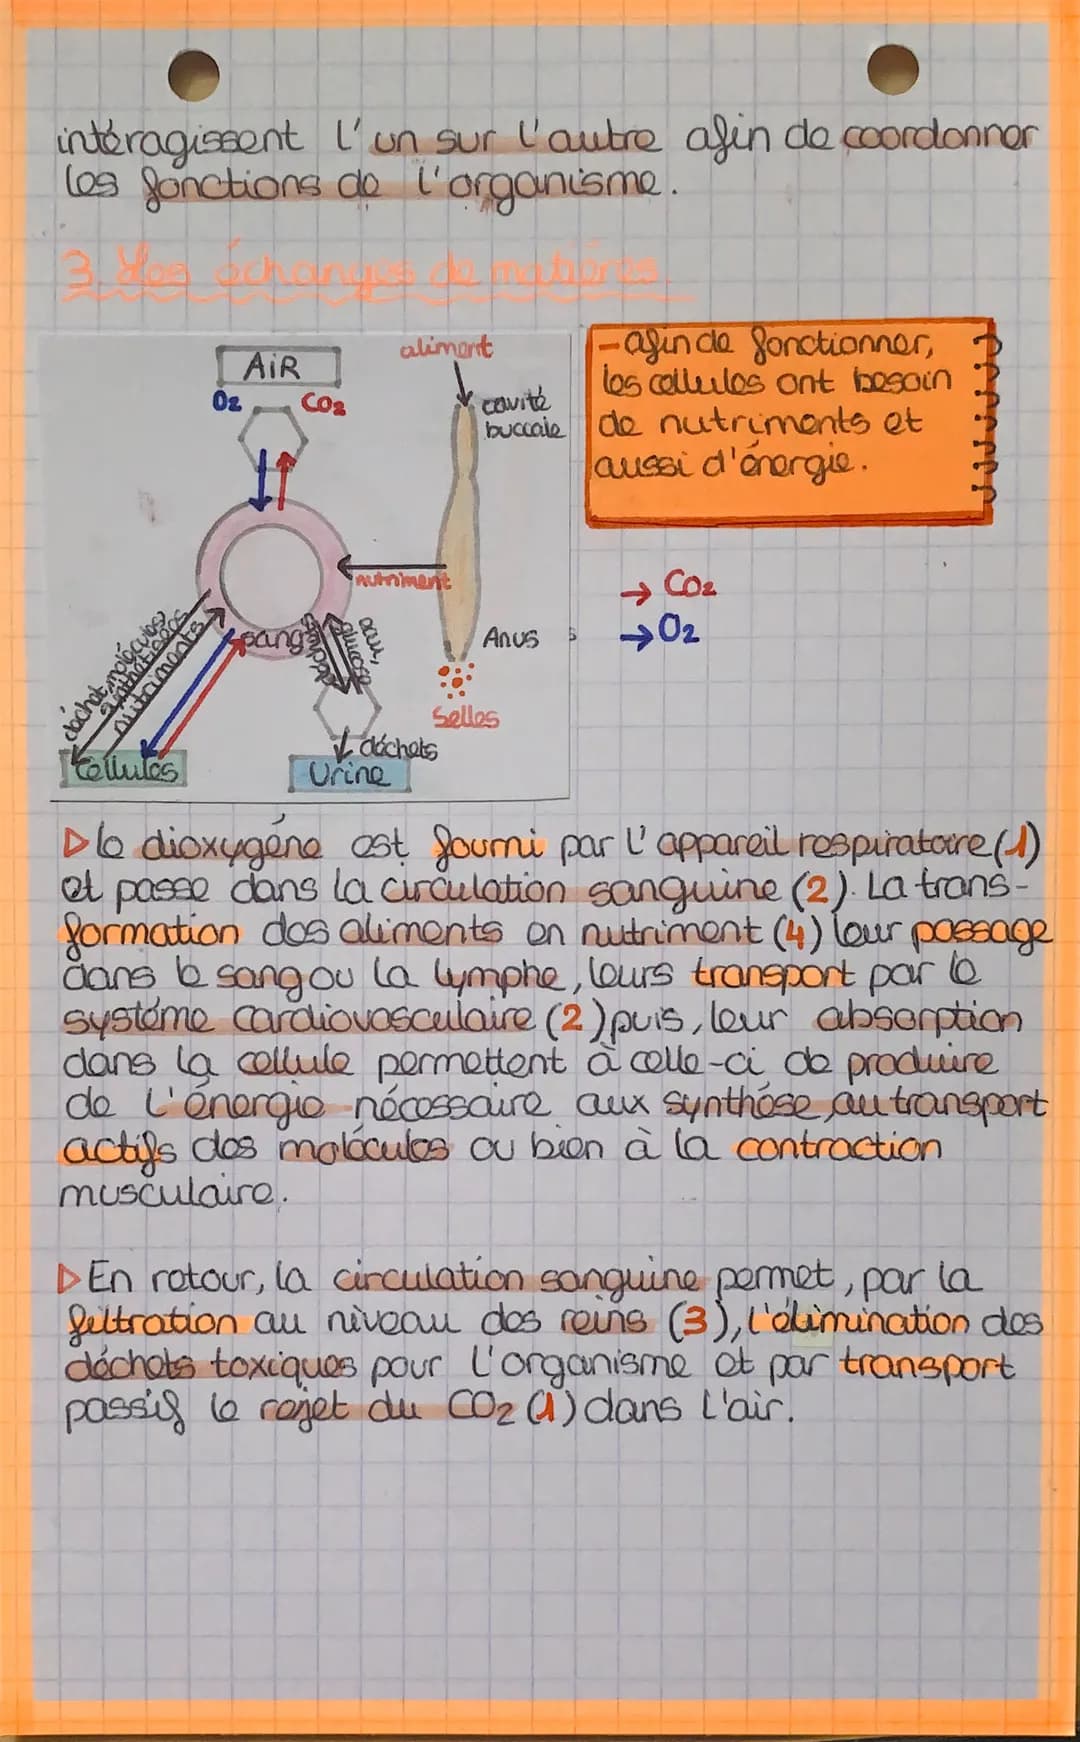 intéragissent l'un sur l'autre afin de coordonner
les fonctions de l'organisme.
3. Les échanges de matières.
AiR
O2
CO2
aliment
cavité
buccale
nutriment
sang
Anus
Selles
déchet, molécules
synthétisées
nutriments
eau,
glucose
déchets
Cellules
Urine
- afin de fonctionner,
les cellules ont besoin
de nutriments et
aussi d'énergie.
→ CO2
→ O2
▷ le dioxygène est fourni par l'appareil respiratoire (1)
et passe dans la circulation sanguine (2). La trans-
formation des aliments en nutriment (4) leur passage
dans le sang ou la lymphe, leurs transport par le
système cardiovasculaire (2) puis, leur absorption
dans la cellule permettent à celle-ci de produire
de l'énergie nécessaire aux synthèse, au transport
actifs des molécules ou bien à la contraction
musculaire.
▷ En retour, la circulation sanguine permet, par la
filtration au niveau des reins (3), l'élimination des
déchets toxiques pour l'organisme et par transport
passif le rejet du CO2 (1) dans l'air.